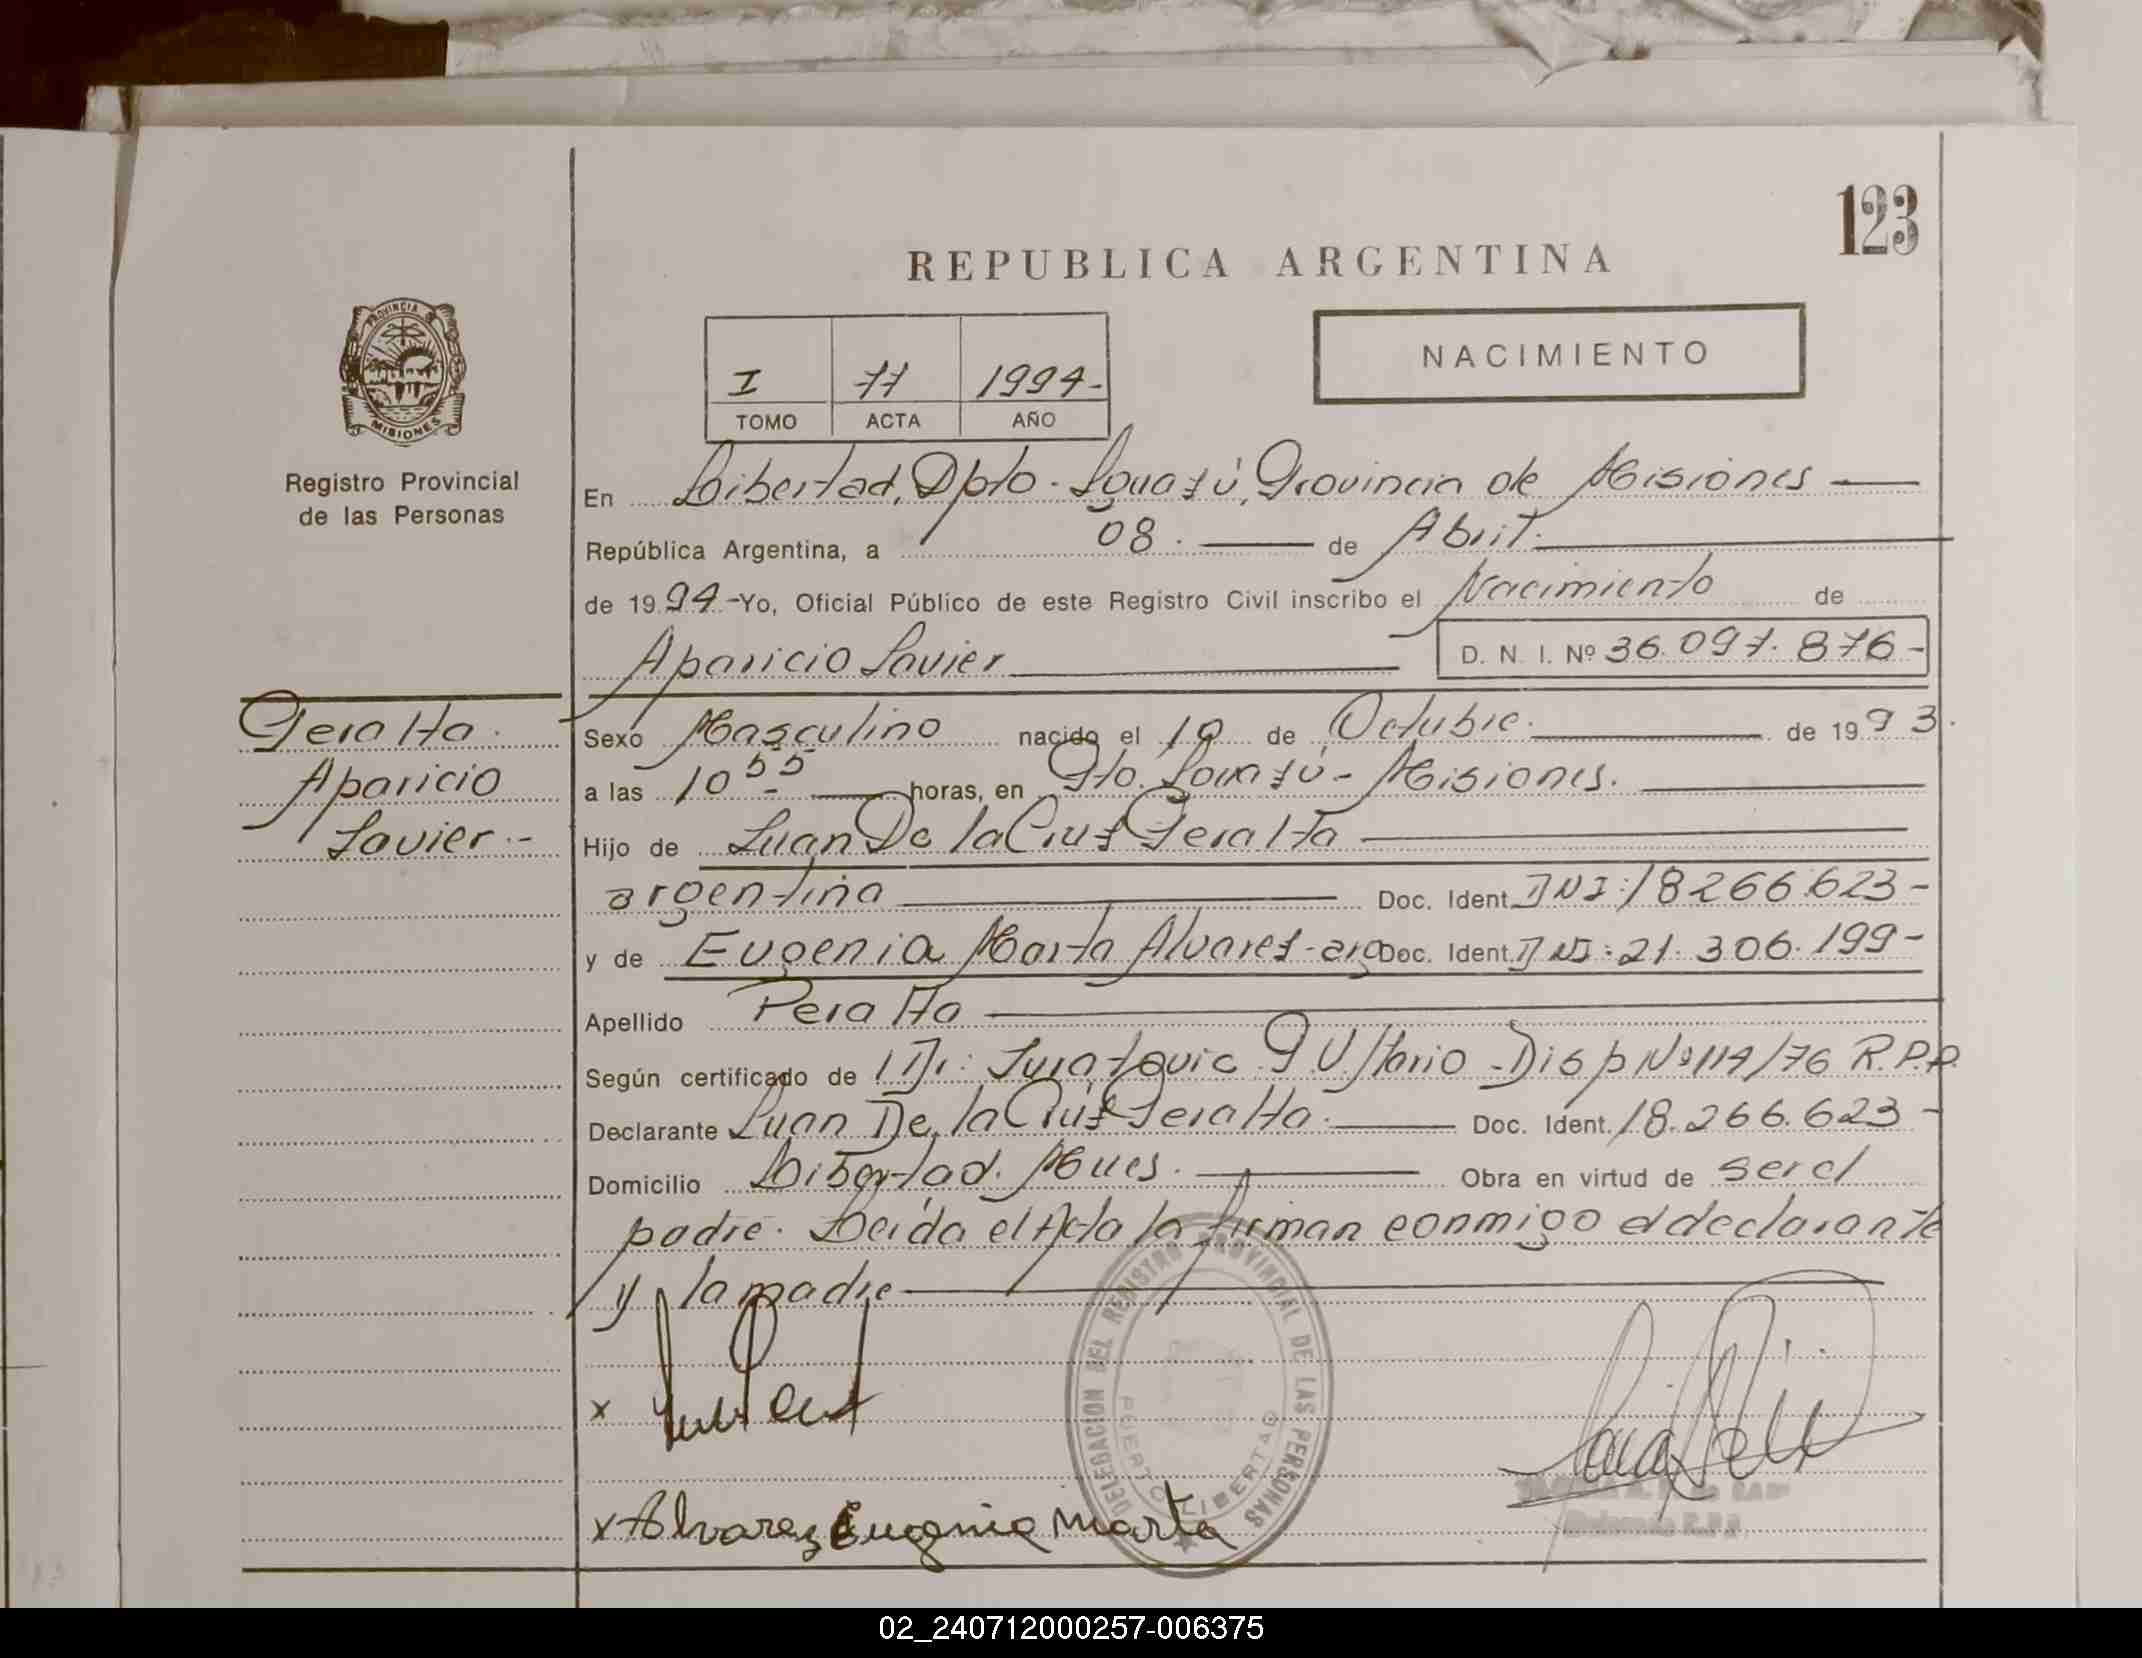 123
REPUBLICA ARGENTINA
PROVINCIA
MISIONES
Registro Provincial
de las Personas
NACIMIENTO
I 77 1994-
TOMO ACTA AÑO
En Libertad, Dpto. Iguazú, Provincia de Misiones
República Argentina, a 08. de Abril.
de 1994-Yo, Oficial Público de este Registro Civil inscribo el Nacimiento de
Aparicio Javier D. N. I. Nº 36.097.876-
Peralta.
Aparicio
Javier.-
Sexo Masculino nacido el 19 de Octubre. de 1993.
a las 10 55 horas, en Pto. Iguazú - Misiones.
Hijo de Juan De la Cruz Peralta
argentina Doc. Ident. DNI:18266.623-
y de Eugenia Marta Alvarez-arg Doc. Ident. DNI:21.306.199-
Apellido Peralta
Según certificado de Dr. -Disp Nº 114/76 R.P.P.
Declarante Juan De la Crúz Peralta. Doc. Ident. 18.266.623-
Domicilio Libertad. Mnes. Obra en virtud de ser el
padre. Leída el Acta la firman conmigo el declarante
y la madre
x
x Alvarez Eugenia Marta
DELEGACION DEL REGISTRO PROVINCIAL DE LAS PERSONAS
PUERTO LIBERTAD
02_240712000257-006375